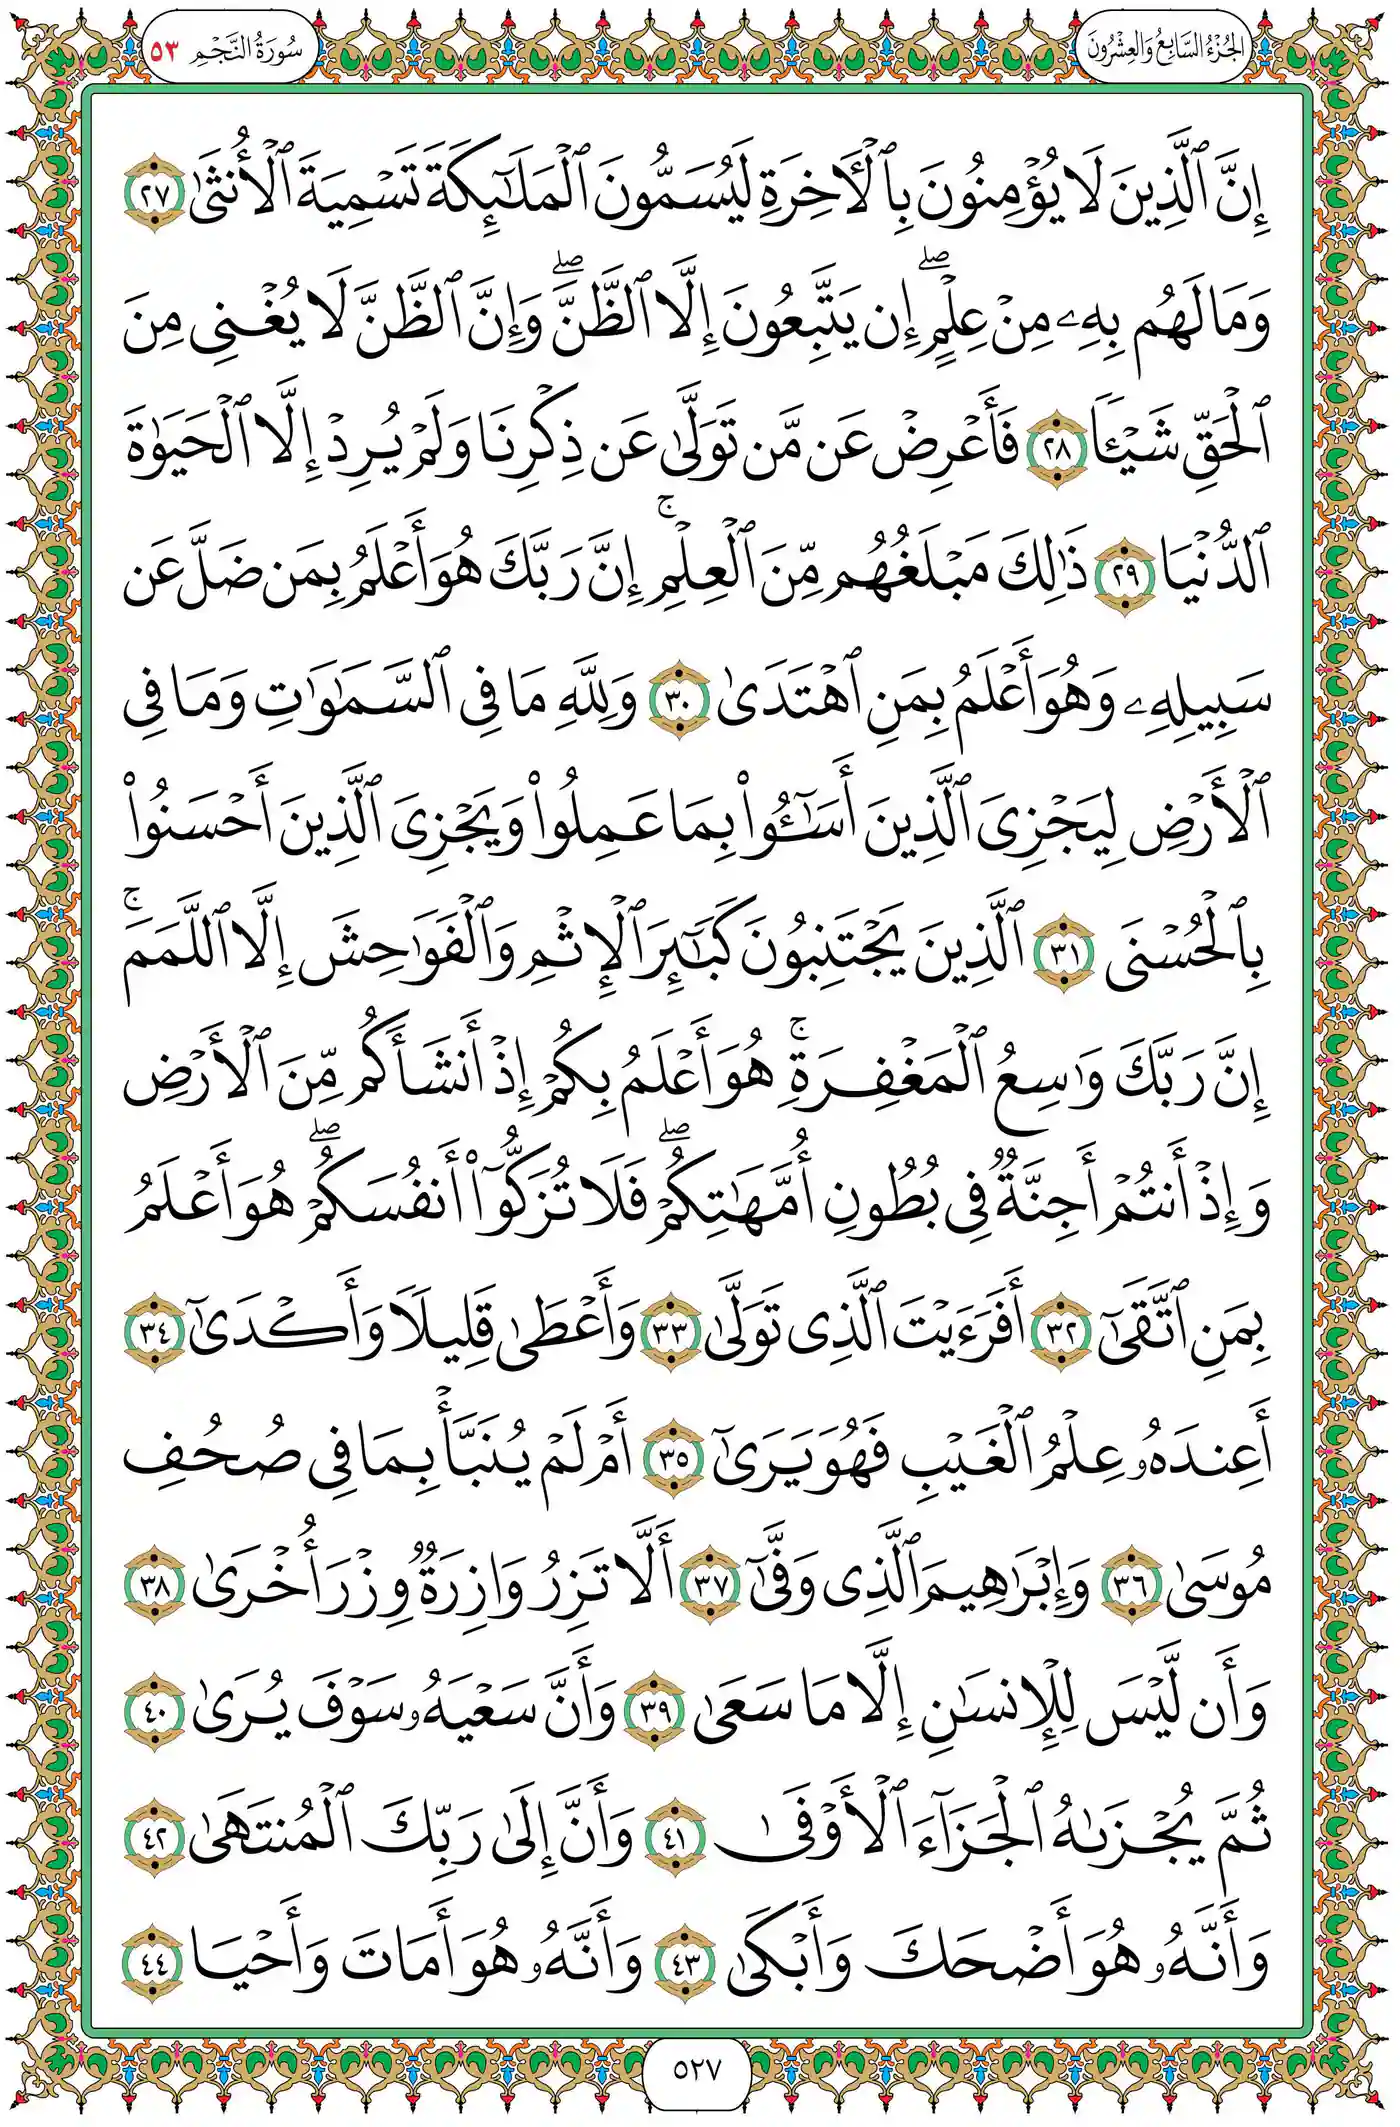 الجُزْءُ السَّابِعُ وَالعِشْرُونَ
سُورَةُ النَّجْمِ ٥٣
إِنَّ ٱلَّذِينَ لَا يُؤْمِنُونَ بِٱلْأَخِرَةِ لَيُسَمُّونَ ٱلْمَلَـٰٓئِكَةَ تَسْمِيَةَ ٱلْأُنثَىٰ ٢٧
وَمَا لَهُم بِهِۦ مِنْ عِلْمٍ ۖ إِن يَتَّبِعُونَ إِلَّا ٱلظَّنَّ ۖ وَإِنَّ ٱلظَّنَّ لَا يُغْنِى مِنَ
ٱلْحَقِّ شَيْـًٔا ٢٨ فَأَعْرِضْ عَن مَّن تَوَلَّىٰ عَن ذِكْرِنَا وَلَمْ يُرِدْ إِلَّا ٱلْحَيَوٰةَ
ٱلدُّنْيَا ٢٩ ذَٰلِكَ مَبْلَغُهُم مِّنَ ٱلْعِلْمِ ۚ إِنَّ رَبَّكَ هُوَ أَعْلَمُ بِمَن ضَلَّ عَن
سَبِيلِهِۦ وَهُوَ أَعْلَمُ بِمَنِ ٱهْتَدَىٰ ٣٠ وَلِلَّهِ مَا فِى ٱلسَّمَـٰوَٰتِ وَمَا فِى
ٱلْأَرْضِ لِيَجْزِىَ ٱلَّذِينَ أَسَـٰٓـُٔوا۟ بِمَا عَمِلُوا۟ وَيَجْزِىَ ٱلَّذِينَ أَحْسَنُوا۟
بِٱلْحُسْنَى ٣١ ٱلَّذِينَ يَجْتَنِبُونَ كَبَـٰٓئِرَ ٱلْإِثْمِ وَٱلْفَوَٰحِشَ إِلَّا ٱللَّمَمَ ۚ
إِنَّ رَبَّكَ وَٰسِعُ ٱلْمَغْفِرَةِ ۚ هُوَ أَعْلَمُ بِكُمْ إِذْ أَنشَأَكُم مِّنَ ٱلْأَرْضِ
وَإِذْ أَنتُمْ أَجِنَّةٌ فِى بُطُونِ أُمَّهَـٰتِكُمْ ۖ فَلَا تُزَكُّوٓا۟ أَنفُسَكُمْ ۖ هُوَ أَعْلَمُ
بِمَنِ ٱتَّقَىٰٓ ٣٢ أَفَرَءَيْتَ ٱلَّذِى تَوَلَّىٰ ٣٣ وَأَعْطَىٰ قَلِيلًا وَأَكْدَىٰٓ ٣٤
أَعِندَهُۥ عِلْمُ ٱلْغَيْبِ فَهُوَ يَرَىٰٓ ٣٥ أَمْ لَمْ يُنَبَّأْ بِمَا فِى صُحُفِ
مُوسَىٰ ٣٦ وَإِبْرَٰهِيمَ ٱلَّذِى وَفَّىٰٓ ٣٧ أَلَّا تَزِرُ وَازِرَةٌ وِزْرَ أُخْرَىٰ ٣٨
وَأَن لَّيْسَ لِلْإِنسَـٰنِ إِلَّا مَا سَعَىٰ ٣٩ وَأَنَّ سَعْيَهُۥ سَوْفَ يُرَىٰ ٤٠
ثُمَّ يُجْزَىٰهُ ٱلْجَزَآءَ ٱلْأَوْفَىٰ ٤١ وَأَنَّ إِلَىٰ رَبِّكَ ٱلْمُنتَهَىٰ ٤٢
وَأَنَّهُۥ هُوَ أَضْحَكَ وَأَبْكَىٰ ٤٣ وَأَنَّهُۥ هُوَ أَمَاتَ وَأَحْيَا ٤٤
٥٢٧